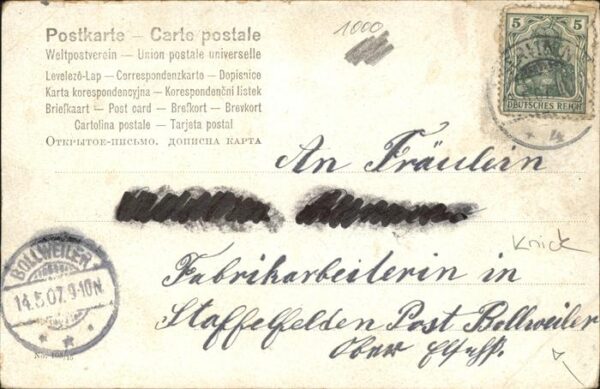 Postkarte — Carte postale
Weltpostverein — Union postale universelle
Levelező-Lap — Correspondenzkarte — Dopisnice
Karta korespondencyjna — Korespondenční listek
Briefkaart — Post card — Brefkort — Brevkort
Cartolina postale — Tarjeta postal
Открытое-письмо. дописна карта
1000
5 5
DEUTSCHES REICH
An Fräulein
Knick
Fabrikarbeiterin in
Staffelfelden Post Bollweiler
Ober Elsaß.
BOLLWEILER
14.5.07. 9-10N.